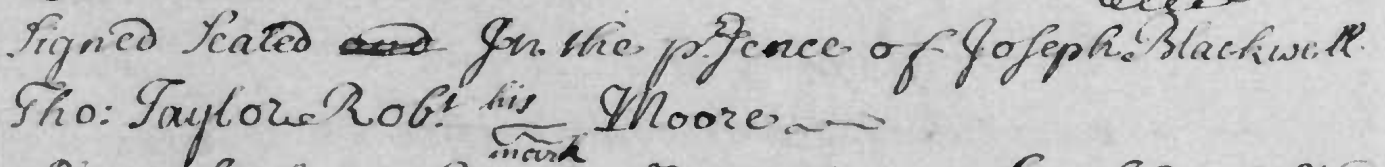 Signed Sealed and In the pʳsence of Joseph Blackwell
Tho: Taylor Robᵗ his mark Moore